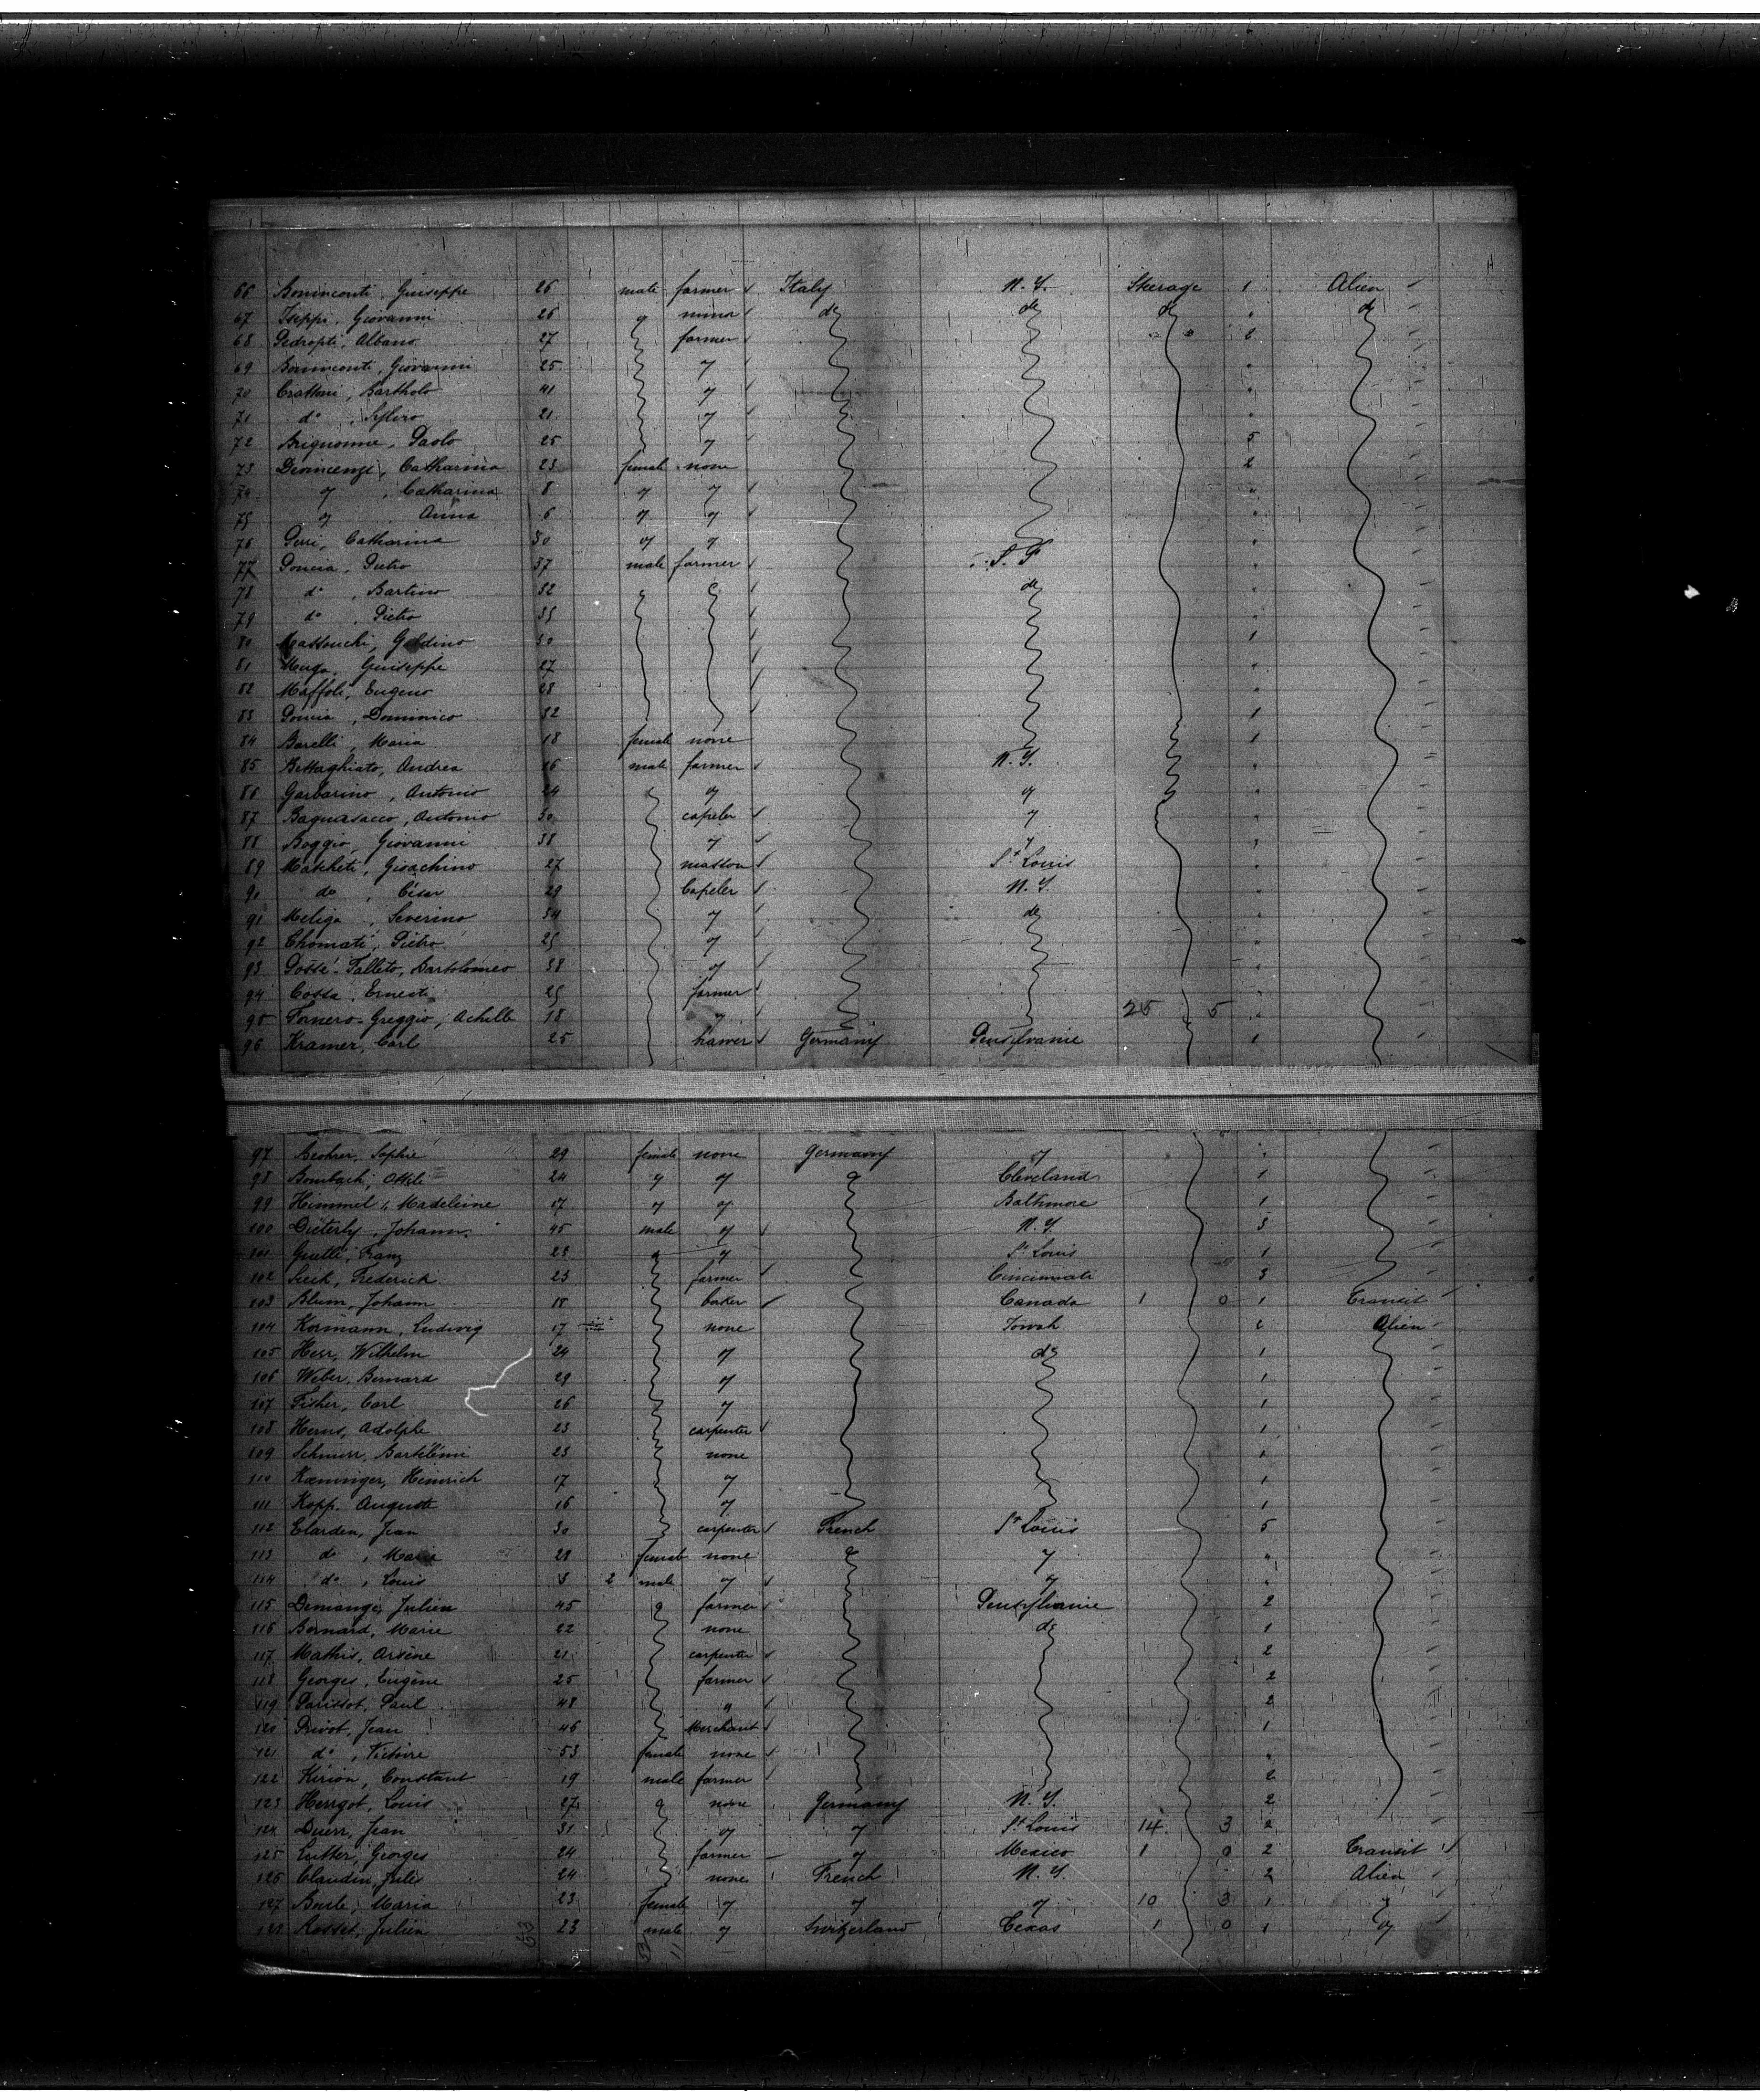 66 Boninconti, Guiseppe 26 male farmer Italy N.Y. Steerage 1 Alien
67 Iseppi, Giovanni 26 " minor do do do " do
68 Pedropti, Albano 27 farmer
69 Boninconti, Giovanni 25 "
70 Crattini, Bartholo 41 "
71 do, Sylvro 21 "
72 Brignonne, Paolo 25 " 5
73 Catharina 23 female none 2
74 " , Catharina 8 " " "
75 " Anna 6 " " "
76 Catharina 50 " " "
77 Poncia, Pietro 37 male farmer S. F "
78 do, Bartino 32 do "
79 do, Pietro 35 "
80 1
81 Muga, Guiseppe 27 "
82 Maffoli, Eugeno 28 "
83 Poncia, Dominico 32 1
84 Barelli, Maria 18 female none 1
85 Bettaghiato, Andrea 16 male farmer N.Y. "
86 Garbarino, Antonio 24 " " "
87 Bagnasacco, Antonio 30 capeler " "
88 Boggio, Giovanni 38 " "
89 Matcheti, Gioachino 27 masson St Louis "
90 do, César 29 Capeler N.Y. "
91 Meliga, Severino 34 " do "
92 Chomati, Pietro 25 " "
93 Possé-Falleto, Bartolomeo 38 " "
94 Cossa, Ernest 25 farmer "
95 Fornero-Greggio, Achille 18 " 25 5 "
96 Kramer, Carl 25 Germany Pensylvanie 1
97 Sophie 29 female none Germany " "
98 Bombach, 24 " " " Cleveland 1
99 Himmel, Madeleine 17 " " Balthmore 1
100 Dieterly, Johann 45 male " N.Y. 3
101 Franz 23 " " St Louis 1
102 Frederick 23 farmer Cincinnati 3
103 Blum, Johann 18 baker Canada 1 0 1 Transit
104 Kormann, Ludwig 17 none Iowah 1 Alien
105 Herr, Wilhelm 24 " do 1
106 Weber, Bernard 29 " 1
107 Fisher, Carl 26 " 1
108 Adolphe 23 carpenter 1
109 Schnurr, Bartélémi 23 none 1
110 Kenninger, Heinrich 17 " 1
111 Kopp, Auguste 16 " 1
112 Clarden, Jean 30 carpenter French St Louis 5
113 do, Maria 28 female none " " "
114 do, Louis 3 2 male " " "
115 Demange, Julien 45 " farmer Pensylvanie 2
116 Bernard, Marie 22 none do 1
117 Mathis, Arsène 21 carpenter 2
118 Georges, Eugène 25 farmer 2
119 Parissot, Paul 48 " 2
120 Privot, Jean 46 Merchant 1
121 do, Victoire 53 female none "
122 Kirion, Constant 19 male farmer 2
123 Herrgot, Louis 27 " none Germany N.Y. 2
124 Duerr, Jean 31 " " St Louis 14 3 2
125 Lutter, Georges 24 farmer " Mexico 1 0 2 Transit
126 Claudin, Jules 24 none French N.Y. 2 Alien
127 Maria 23 female " " " 10 3 1 "
128 Rosset, Julien 23 male " Switzerland Texas 1 0 1 "